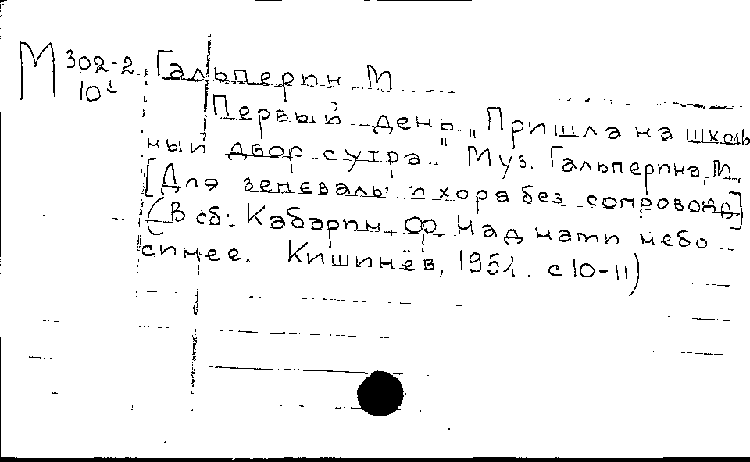 М 302-2 Гальперин М
10
Первый день „Пришла на школь
ный двор с утра." Муз. Гальперина, М.
[Для запевалы и хора без сопровожд]
(В сб: Кабарин Ф. Над нами небо
синее. Кишинёв, 1951. с 10-11)